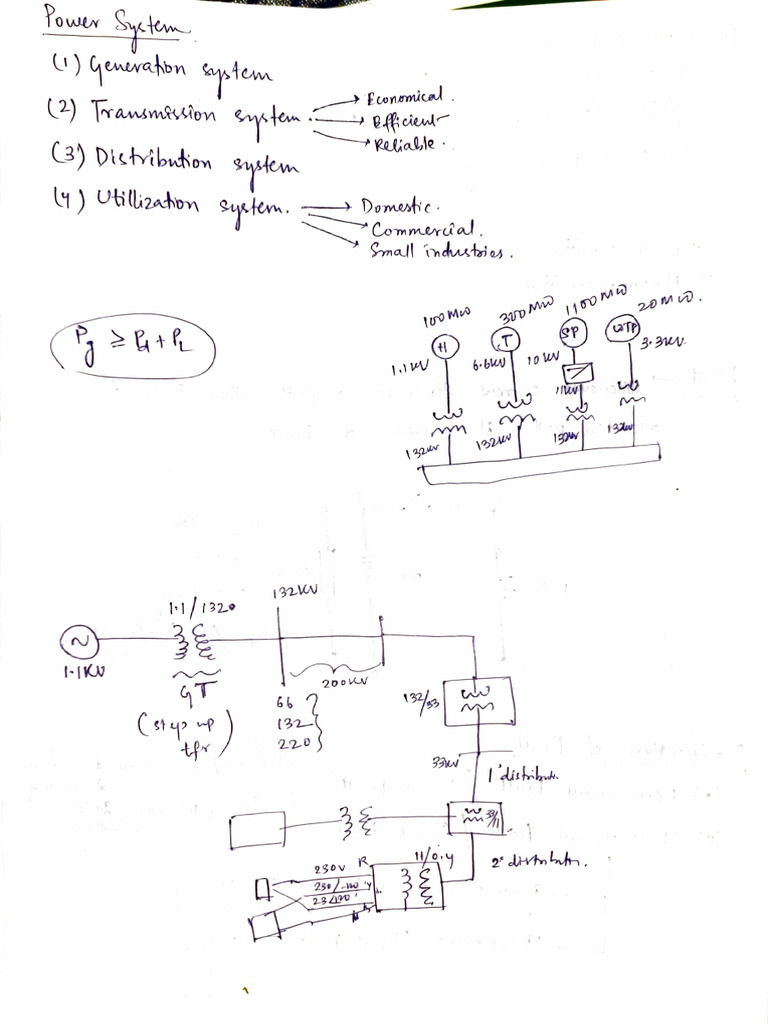 Power System
(1) Generation system
(2) Transmission system
Economical.
Efficient
Reliable.
(3) Distribution system
(4) Utillization system.
Domestic.
Commercial.
Small industries.
100MW 300MW 1100MW 20MW.
H T SP WTP
1.1KV 6.6KV 10KV 3.3KV
11KV
132KV 132KV 132KV 132KV
Pg ≥ Pd + PL
132KV
1.1/1320
~
1.1KV
GT
(step up tfr)
200KV
66
132
220
132/33
33KV
1° distributn
33/11
11/0.4
2° distributn.
230V R
230/-120 Y